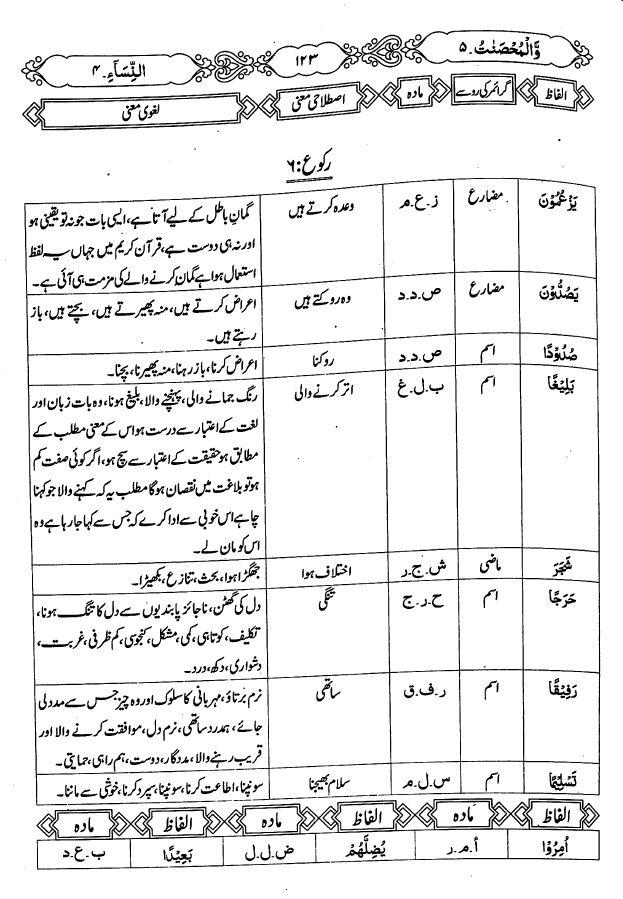 وَّالْمُحْصَنٰتُ۔۵ ۱۲۳ النِّسَآءِ۔۴
الفاظ گرائمر کی روسے مادہ اصطلاحی معنی لغوی معنی
رکوع:۶
یَزْعُمُوْنَ مضارع ز۔ع۔م وعدہ کرتے ہیں گمانِ باطل کے لیے آتا ہے، ایسی بات جو نہ تو یقینی ہو
اور نہ ہی دوست ہے، قرآن کریم میں جہاں یہ لفظ
استعمال ہوا ہے گمان کرنے والے کی مزمت ہی آئی ہے۔
یَصُدُّوْنَ مضارع ص۔د۔د وہ روکتے ہیں اعراض کرتے ہیں، منہ پھیرتے ہیں، بچتے ہیں، باز
رہتے ہیں۔
صُدُوْدًا اسم ص۔د۔د روکنا اعراض کرنا، باز رہنا، منہ پھیرنا، بچنا۔
بَلِیْغًا اسم ب۔ل۔غ اثر کرنے والی رنگ جمانے والی، پہنچنے والا، بلیغ ہونا، وہ بات زبان اور
لغت کے اعتبار سے درست ہو اس کے معنی مطلب کے
مطابق ہو حقیقت کے اعتبار سے سچ ہو، اگر کوئی صفت کم
ہو تو بلاغت میں نقصان ہوگا مطلب یہ کہ کہنے والا جو کہنا
چاہے اس خوبی سے ادا کرے کہ جس سے کہا جا رہا ہے وہ
اس کو مان لے۔
شَجَرَ ماضی ش۔ج۔ر اختلاف ہوا جھگڑا ہوا، بحث، تنازع، بکھیڑا۔
حَرَجًا اسم ح۔ر۔ج تنگی دل کی گھٹن، ناجائز پابندیوں سے دل کا تنگ ہونا،
تکلیف، کوتاہی، کمی، مشکل، کنجوسی، کم ظرفی، غربت،
دشواری، دکھ، درد۔
رَفِیْقًا اسم ر۔ف۔ق ساتھی نرم برتاؤ، مہربانی کا سلوک اور وہ چیز جس سے مدد لی
جائے، ہمدرد ساتھی، نرم دل، موافقت کرنے والا اور
قریب رہنے والا، مددگار، دوست، ہم راہی، حمایتی۔
تَسْلِیْمًا اسم س۔ل۔م سلام بھیجنا سونپنا، اطاعت کرنا، سونپنا، سپرد کرنا، خوشی سے ماننا۔
الفاظ مادہ الفاظ مادہ الفاظ مادہ
اُمِرُوْا أ۔م۔ر یُضِلَّھُمْ ض۔ل۔ل بَعِیْدًا ب۔ع۔د